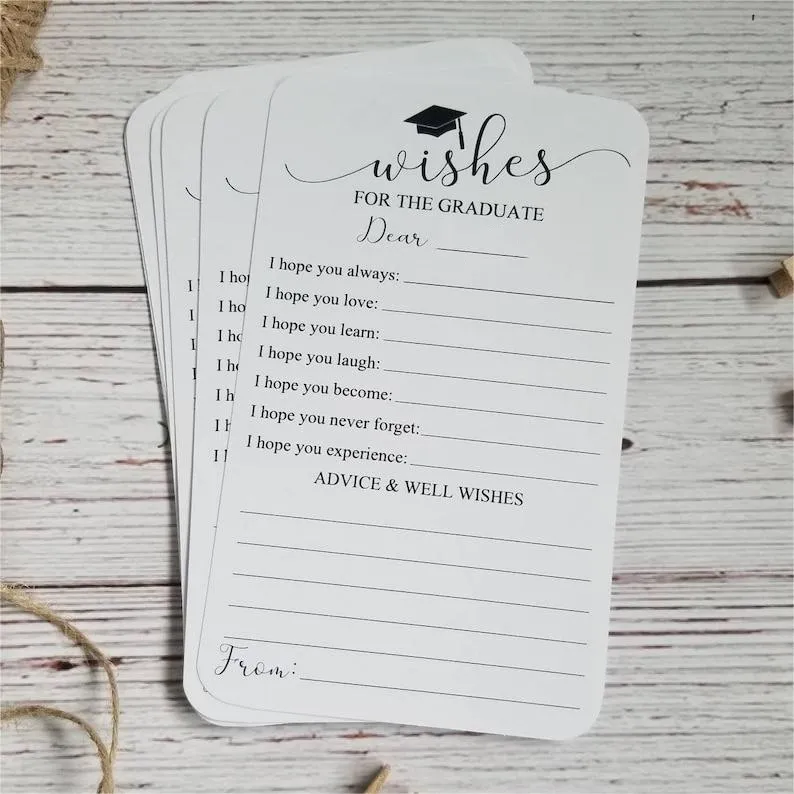 wishes
FOR THE GRADUATE
Dear
I hope you always:
I hope you love:
I hope you learn:
I hope you laugh:
I hope you become:
I hope you never forget:
I hope you experience:
ADVICE & WELL WISHES
From: